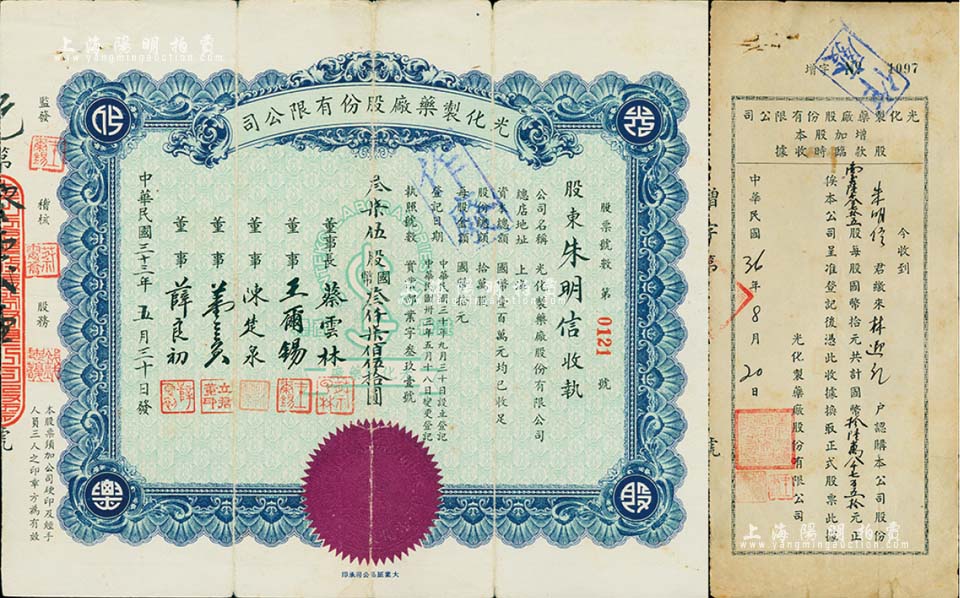 上海陽明拍賣
www.yangmingauction.com
光化製藥廠股份有限公司
股票號數 第 0121 號
股東 朱明信 收執
公司名稱 光化製藥廠股份有限公司
總店地址 上海
資本總額 國幣壹百萬元均已收足
股份總額 拾萬股
每股金額 國幣拾元
登記日期 中華民國三十年九月三十日設立登記
中華民國卅三年五月十八日變更登記
執照號數 實業部業字叁玖壹號
叁柒伍股 國幣叁仟柒佰伍拾圓
作廢
董事長 蔡雲林
董事 王爾錫
董事 陳楚泉
董事
董事 薛良初
中華民國三十三年五月三十日發
光
化
藥
股
監發
稽核
股務
本股票須加公司硬印及經手
人員三人之印章方為有效
大業印刷公司承印
增字 No 1097
作廢
光化製藥廠股份有限公司
增加股本
股款臨時收據
今收到
朱明信 君繳來 林迎記 戶認購本公司股份
股每股國幣拾元共計國幣 元正
俟本公司呈准登記後憑此收據換取正式股票此據
光化製藥廠股份有限公司
中華民國 36 年 8 月 20 日
上海陽明拍賣
www.yangmingauction.com